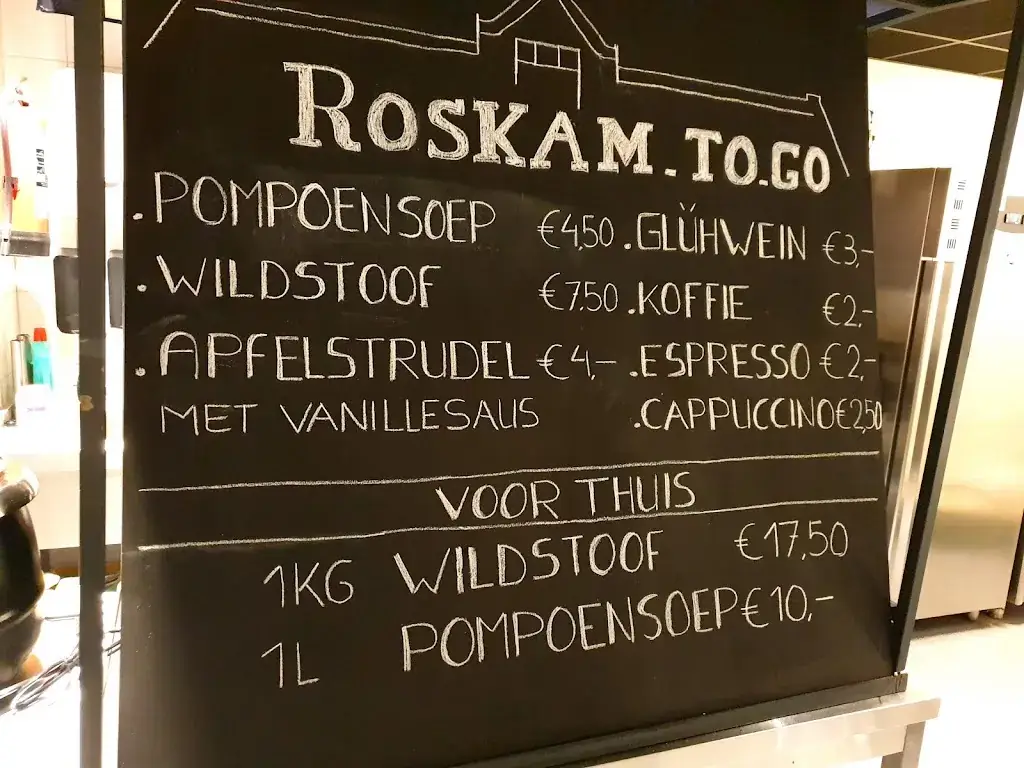 ROSKAM.TO.GO
.POMPOENSOEP €4,50
.WILDSTOOF €7,50
.APFELSTRUDEL €4,-
MET VANILLESAUS
.GLÜHWEIN €3,-
.KOFFIE €2,-
.ESPRESSO €2,-
.CAPPUCCINO €2,50
VOOR THUIS
1KG WILDSTOOF €17,50
1L POMPOENSOEP €10,-